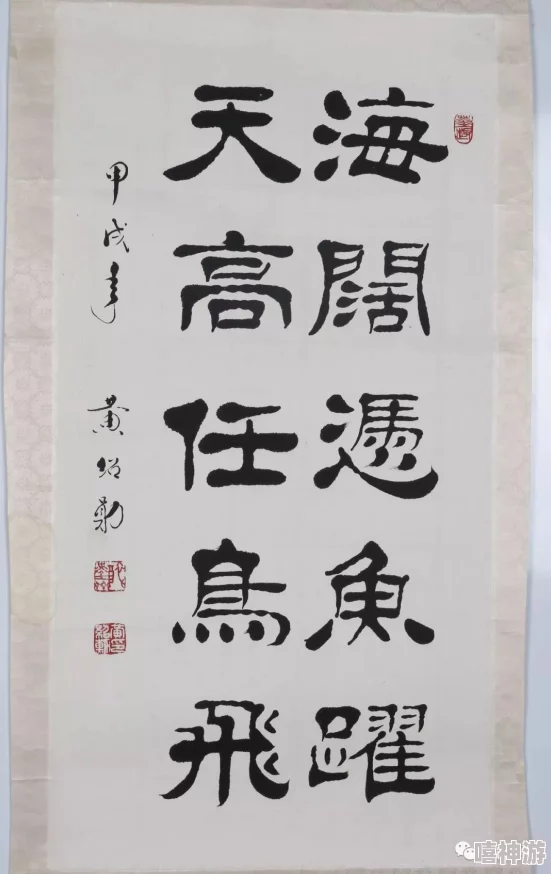 海闊憑魚躍
天高任鳥飛
甲戌年 黄紹勤
嘻神游